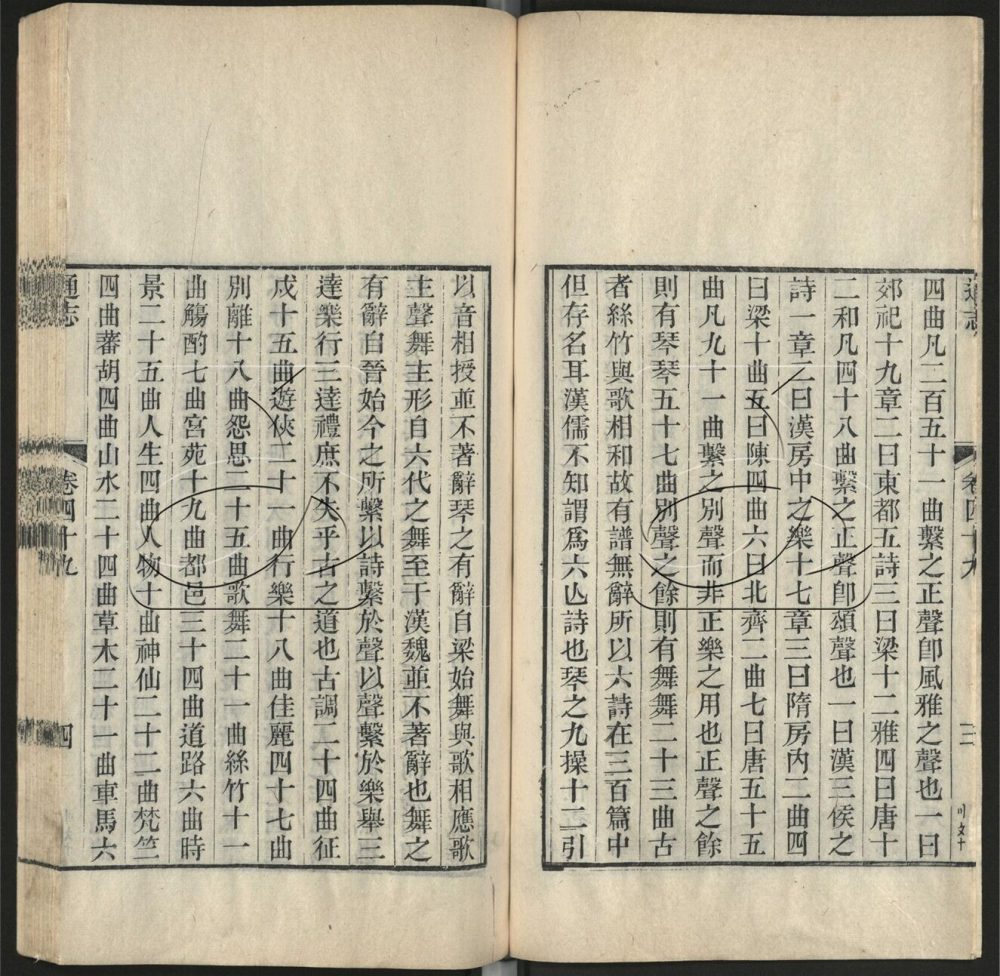 四曲凡二百五十一曲繫之正聲卽風雅之聲也一曰
郊祀十九章二曰東都五詩三曰梁十二雅四曰唐十
二和凡四十八曲繫之正聲卽頌聲也一曰漢三侯之
詩一章二曰漢房中之樂十七章三曰隋房內二曲四
曰梁十曲五曰陳四曲六曰北齊二曲七曰唐五十五
曲凡九十一曲繫之別聲而非正樂之用也正聲之餘
則有琴琴五十七曲別聲之餘則有舞舞二十三曲古
者絲竹與歌相和故有譜無辭所以六詩在三百篇中
但存名耳漢儒不知謂爲六亾詩也琴之九操十二引
以音相授並不著辭琴之有辭自梁始舞與歌相應歌
主聲舞主形自六代之舞至于漢魏並不著辭也舞之
有辭自晉始今之所繫以詩繫於聲以聲繫於樂舉三
達樂行三達禮庶不失乎古之道也古調二十四曲征
戍十五曲遊俠二十一曲行樂十八曲佳麗四十七曲
別離十八曲怨思二十五曲歌舞二十一曲絲竹十一
曲觴酌七曲宮苑十九曲都邑三十四曲道路六曲時
景二十五曲人生四曲人物十曲神仙二十二曲梵竺
四曲蕃胡四曲山水二十四曲草木二十一曲車馬六
通志
卷四十九
四